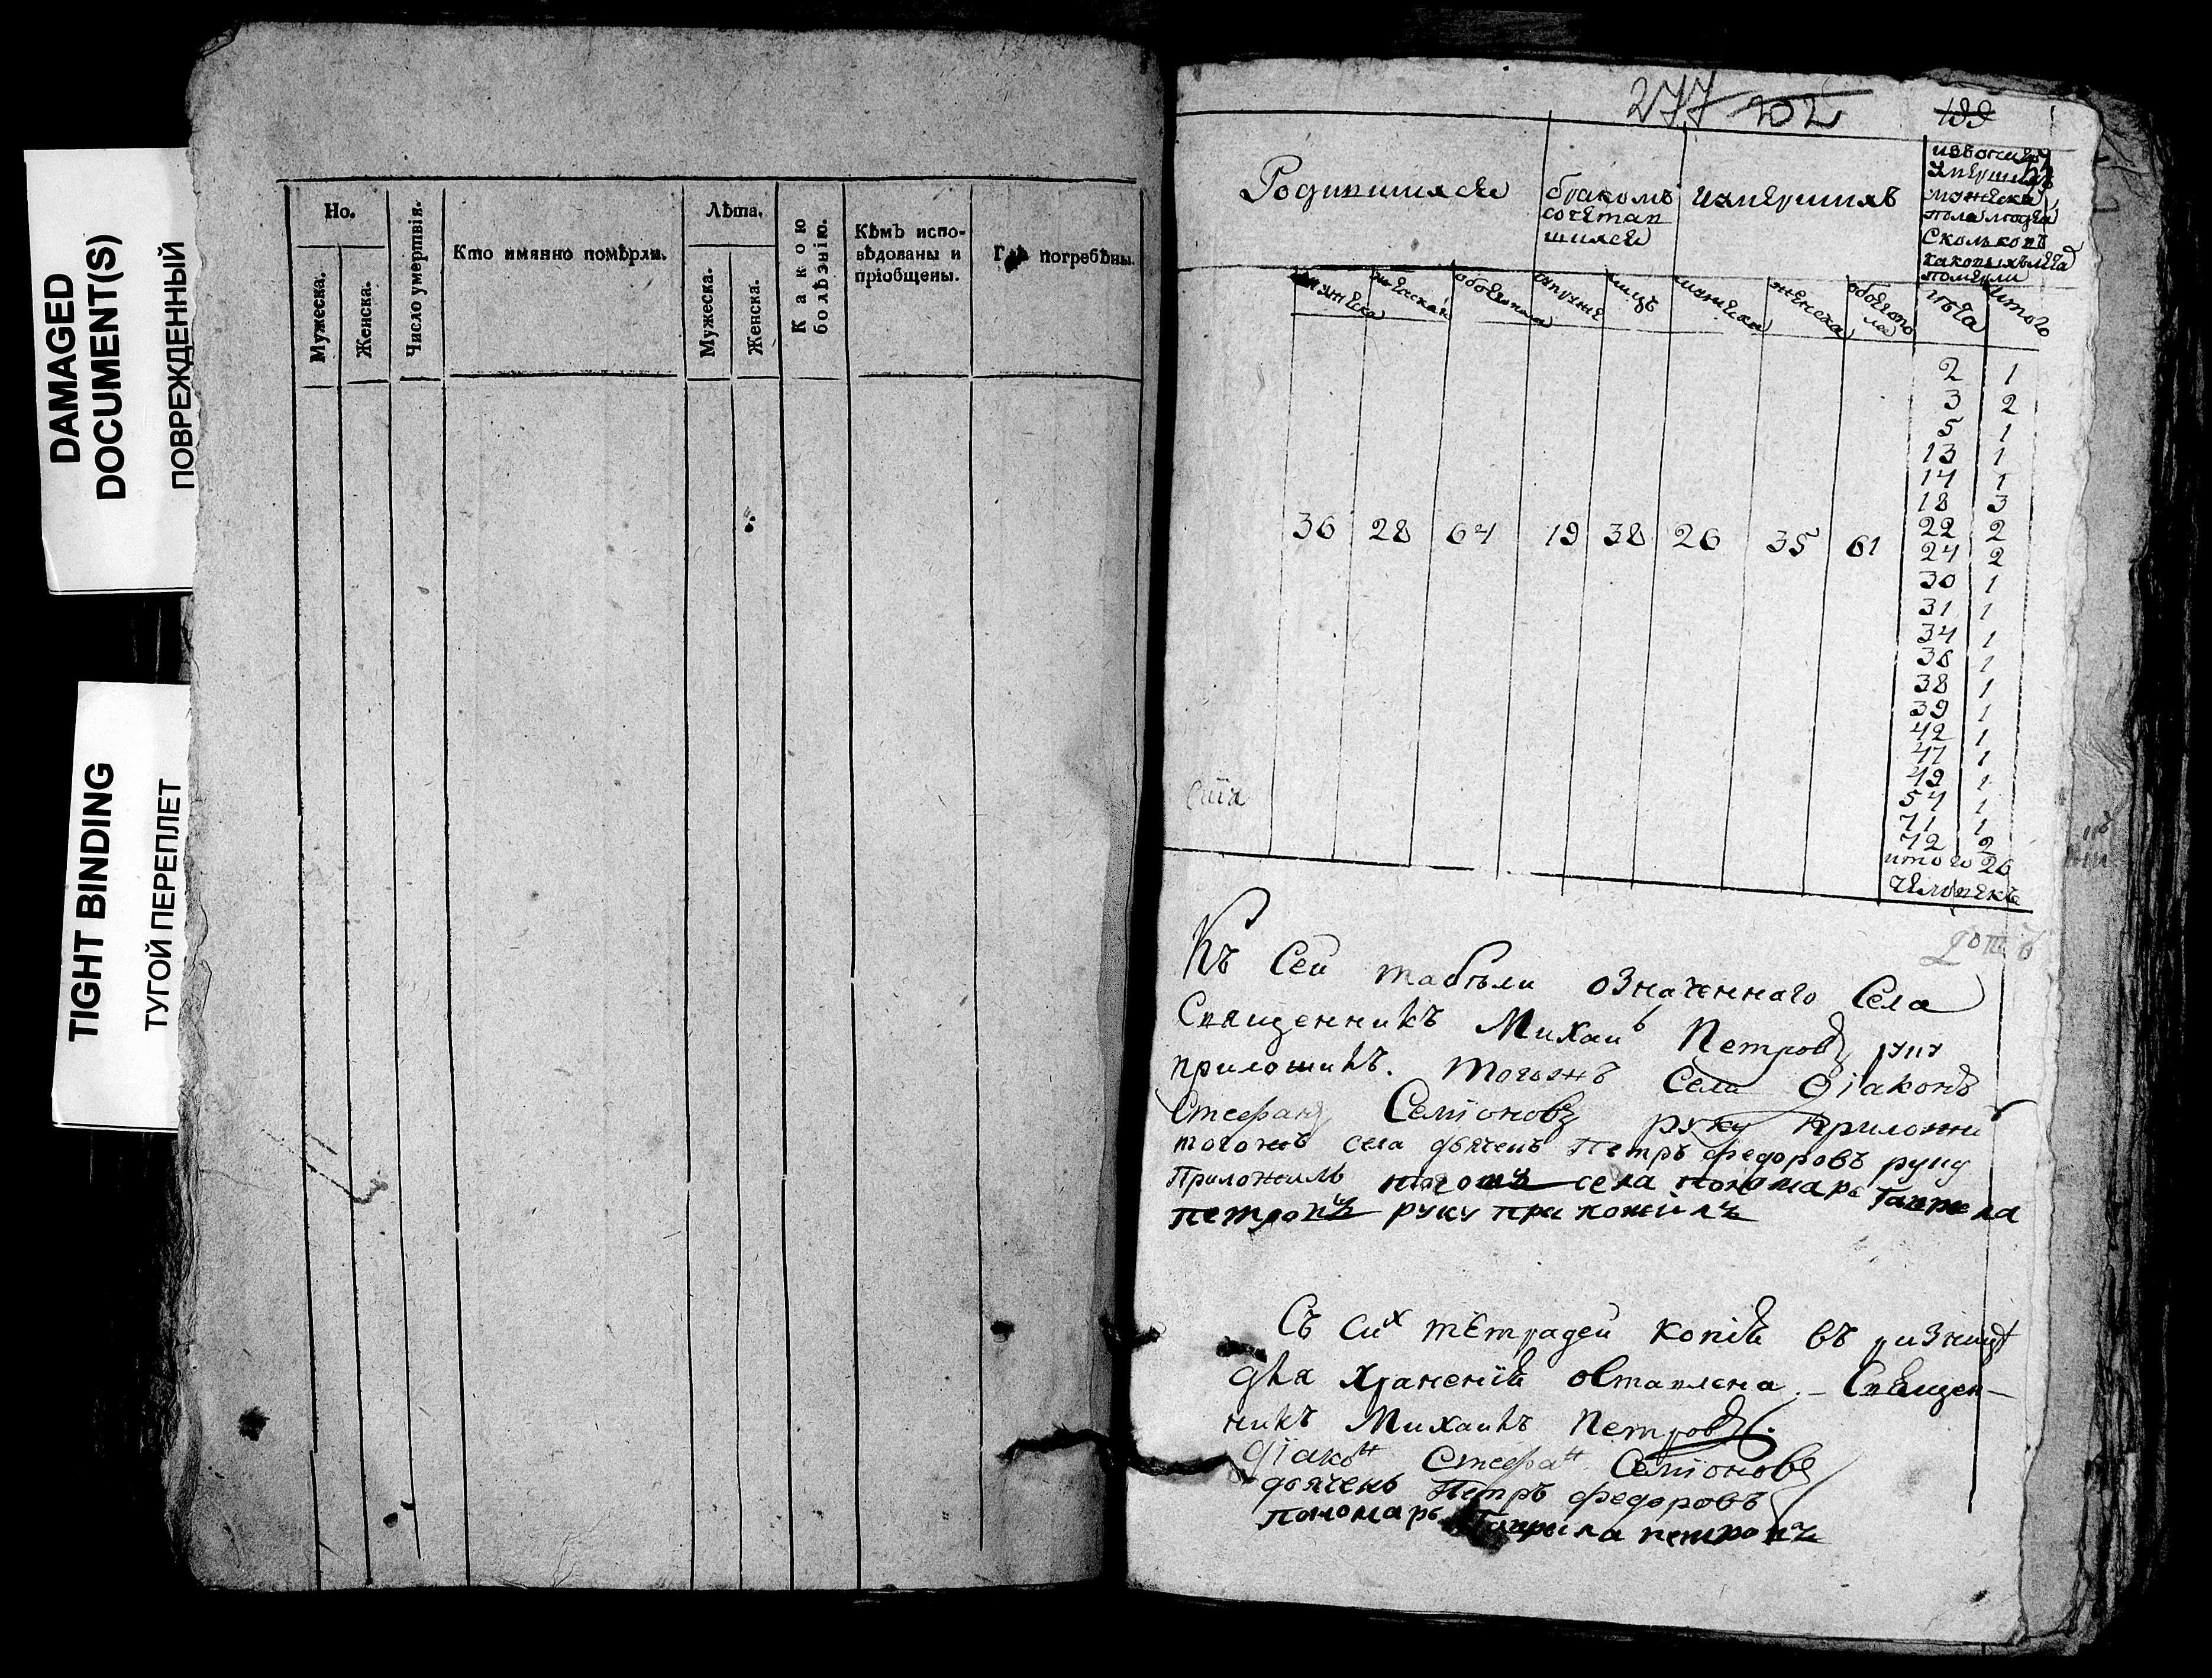 DAMAGED
DOCUMENT(S)
ПОВРЕЖДЕННЫЙ
TIGHT BINDING
ТУГОЙ ПЕРЕПЛЕТ
Но.
Мужеска.
Женска.
Число умертвія.
Кто имянно помѣрли.
Лѣта.
Мужеска.
Женска.
Какою болѣзнію.
Кѣмъ испо-
вѣдованы и
пріобщены.
погребѣны.
277 202
Родившихся
бракомъ
сочетав
шихся
умершихъ
пола
сколько въ
померли
лѣта
итого
2 1
3 2
5 1
13 1
14 1
18 3
22 2
24 2
30 1
31 1
34 1
36 1
38 1
39 1
42 1
47 1
49 1
54 1
71 1
72 2
итого 26
человекъ
36 28 64 19 38 26 35 61
Къ Сей табели означенного Села
Священникъ Михаилъ Петровъ руку
приложилъ. тогожъ Села Діаконъ
Стефанъ Семіоновъ руку приложил
тогожъ села дьячекъ Петръ Федоровъ руку
Приложилъ тогожъ села пономарь Гаврила
петровъ руку приложилъ
Съ сих тетрадей копія въ ризницѣ
для храненія оставлена. – Священ–
никъ Михаилъ Петровъ.
Діакон Стефан Семіоновъ
дьячекъ Петръ Федоровъ
пономарь Гаврила петровъ